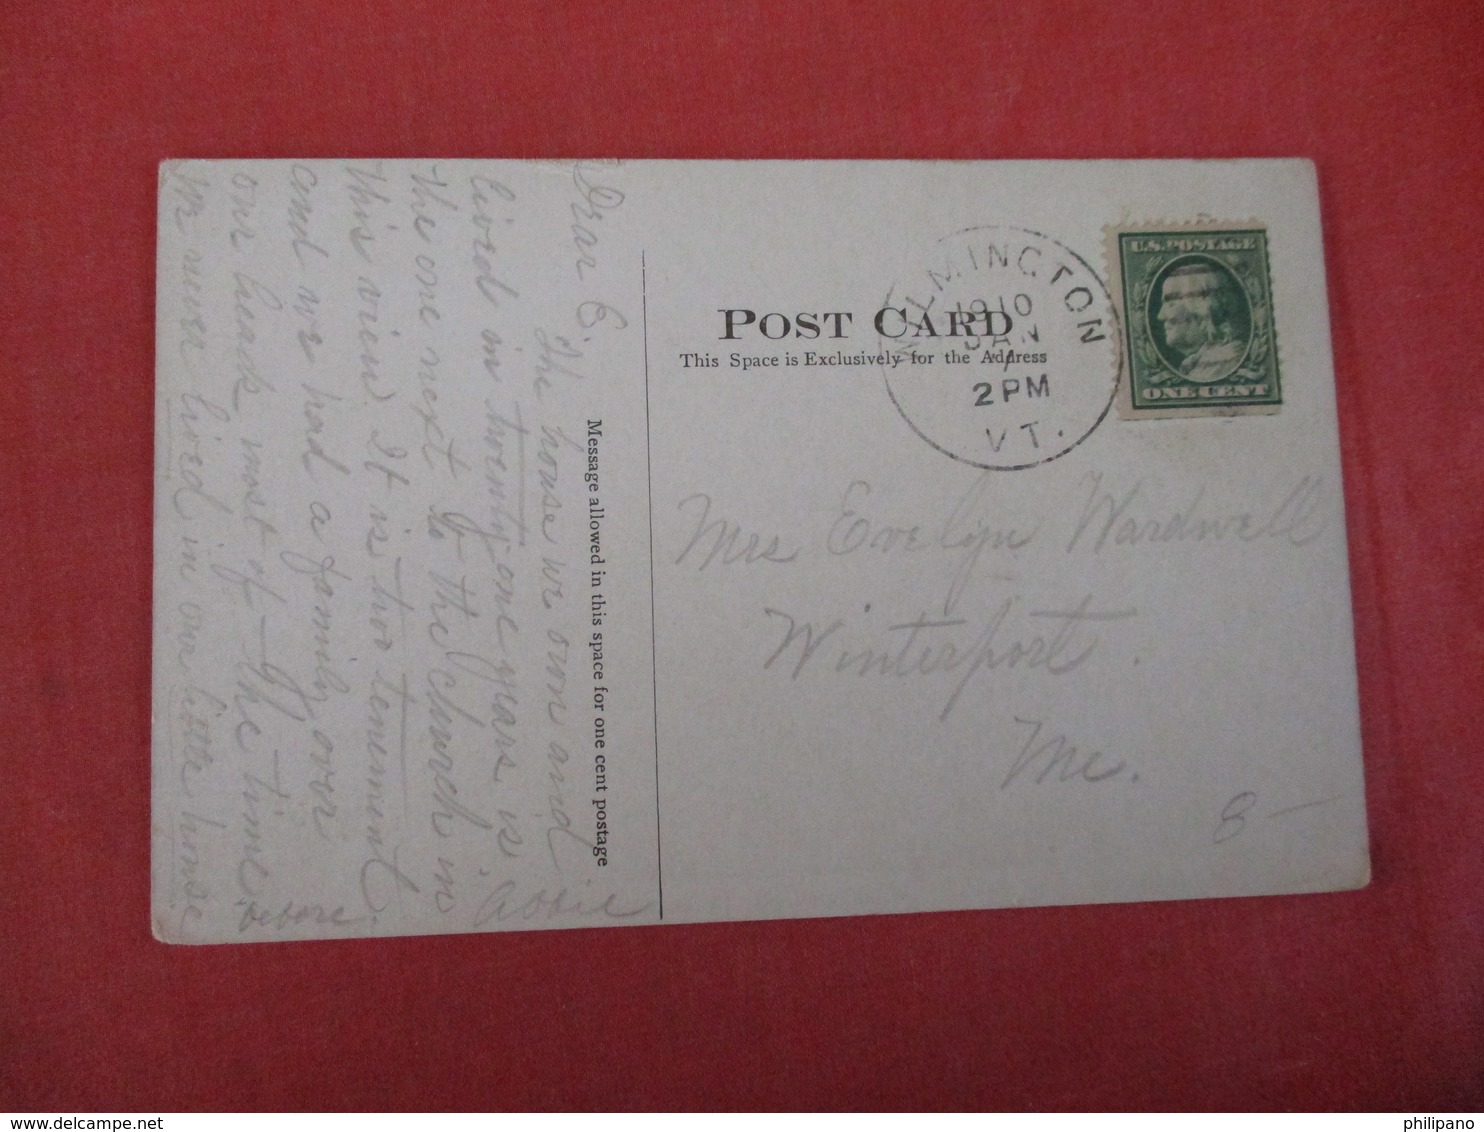 Dear E
The house we own and
lived in twenty one years is
the one next to the church in
this view. It is two tenement.
and we had a family over
our heads most of the time,
we never lived in our little house
before
Abbie
Message allowed in this space for one cent postage
POST CARD
This Space is Exclusively for the Address
WILMINGTON
1910
JAN
2 PM
VT.
U.S. POSTAGE
ONE CENT
Mrs Evelyn Wardwell
Winterport.
Me.
8-
www.delcampe.net
philipano